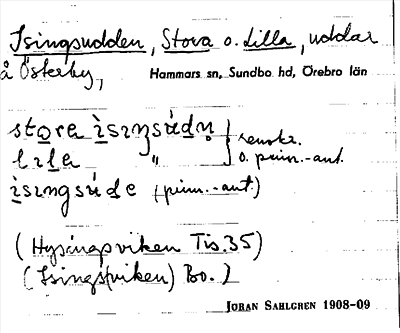 Isingsudden, Stora o. Lilla, uddar
å Österby, Hammars sn, Sundbo hd, Örebro län
sto̲ra ìsıŋsúdn̥ } renskr.
lıla " } o. prim.-ant.
ìsıngsúde (prim.-ant.)
(Hysingsviken Tis.35)
(Isings(viken) Bo.)
JÖRAN SAHLGREN 1908-09